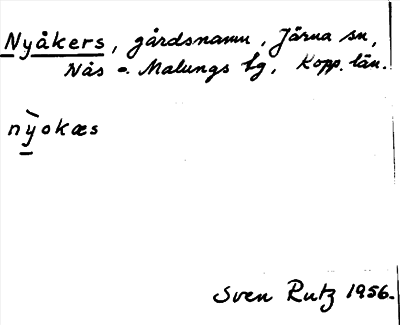 Nyåkers, gårdsnamn, Järna sn,
Nås o. Malungs tg, Kopp. län.
nỳokæs
Sven Rutz 1956.